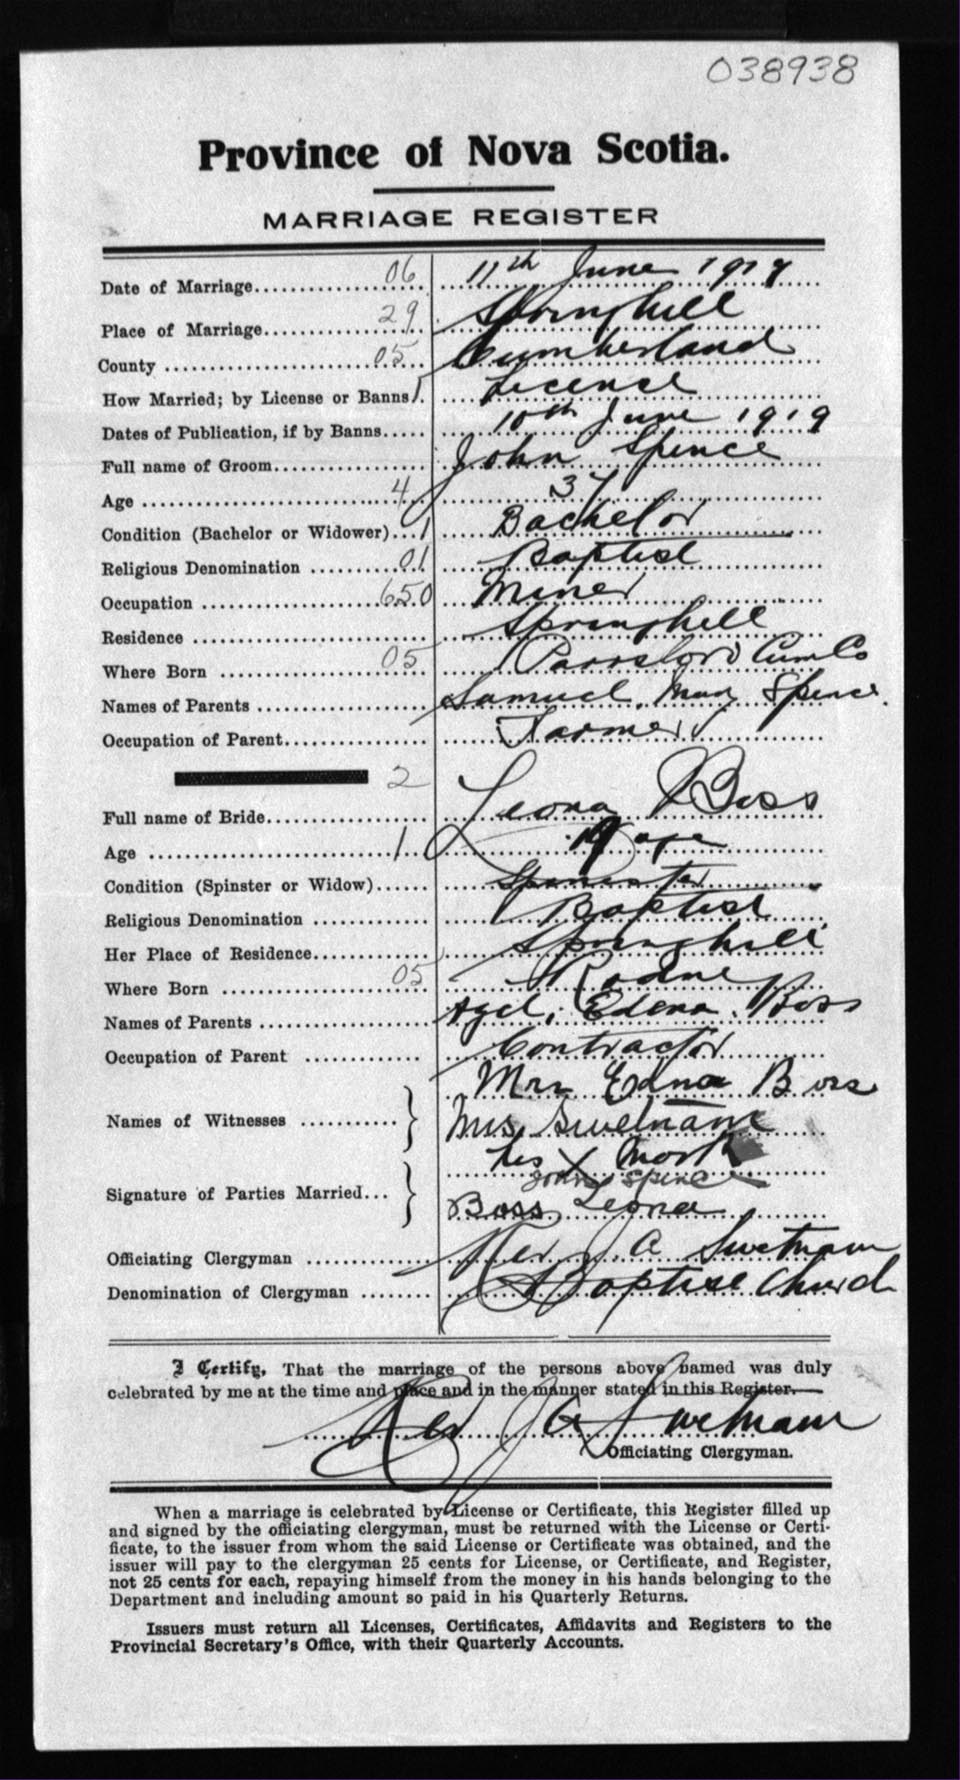 038938
Province of Nova Scotia.
MARRIAGE REGISTER
Date of Marriage 06 11th June 1919
Place of Marriage 29 Springhill
County 05 Cumberland
How Married; by License or Banns 1. License
Dates of Publication, if by Banns 10th June 1919
Full name of Groom John Spence
Age 4 37
Condition (Bachelor or Widower) 1 Bachelor
Religious Denomination 01 Baptist
Occupation 650 Miner
Residence Springhill
Where Born 05 Parrsboro Cum Co
Names of Parents Samuel, Mary Spence.
Occupation of Parent Farmer
2
Full name of Bride Leona Boss
Age 1 19
Condition (Spinster or Widow) Spinster
Religious Denomination Baptist
Her Place of Residence Springhill
Where Born 05 Rodney
Names of Parents Edena Boss
Occupation of Parent Contractor
Mrs Edna Boss
Names of Witnesses Mrs Swetnam
his X Mark
John Spence
Signature of Parties Married
Boss, Leona
Officiating Clergyman Rev J. A Swetnam
Denomination of Clergyman Baptist Church
I Certify, That the marriage of the persons above named was duly
celebrated by me at the time and place and in the manner stated in this Register.
Rev J A Swetnam
Officiating Clergyman.
When a marriage is celebrated by License or Certificate, this Register filled up
and signed by the officiating clergyman, must be returned with the License or Certi-
ficate, to the issuer from whom the said License or Certificate was obtained, and the
issuer will pay to the clergyman 25 cents for License, or Certificate, and Register,
not 25 cents for each, repaying himself from the money in his hands belonging to the
Department and including amount so paid in his Quarterly Returns.
Issuers must return all Licenses, Certificates, Affidavits and Registers to the
Provincial Secretary's Office, with their Quarterly Accounts.